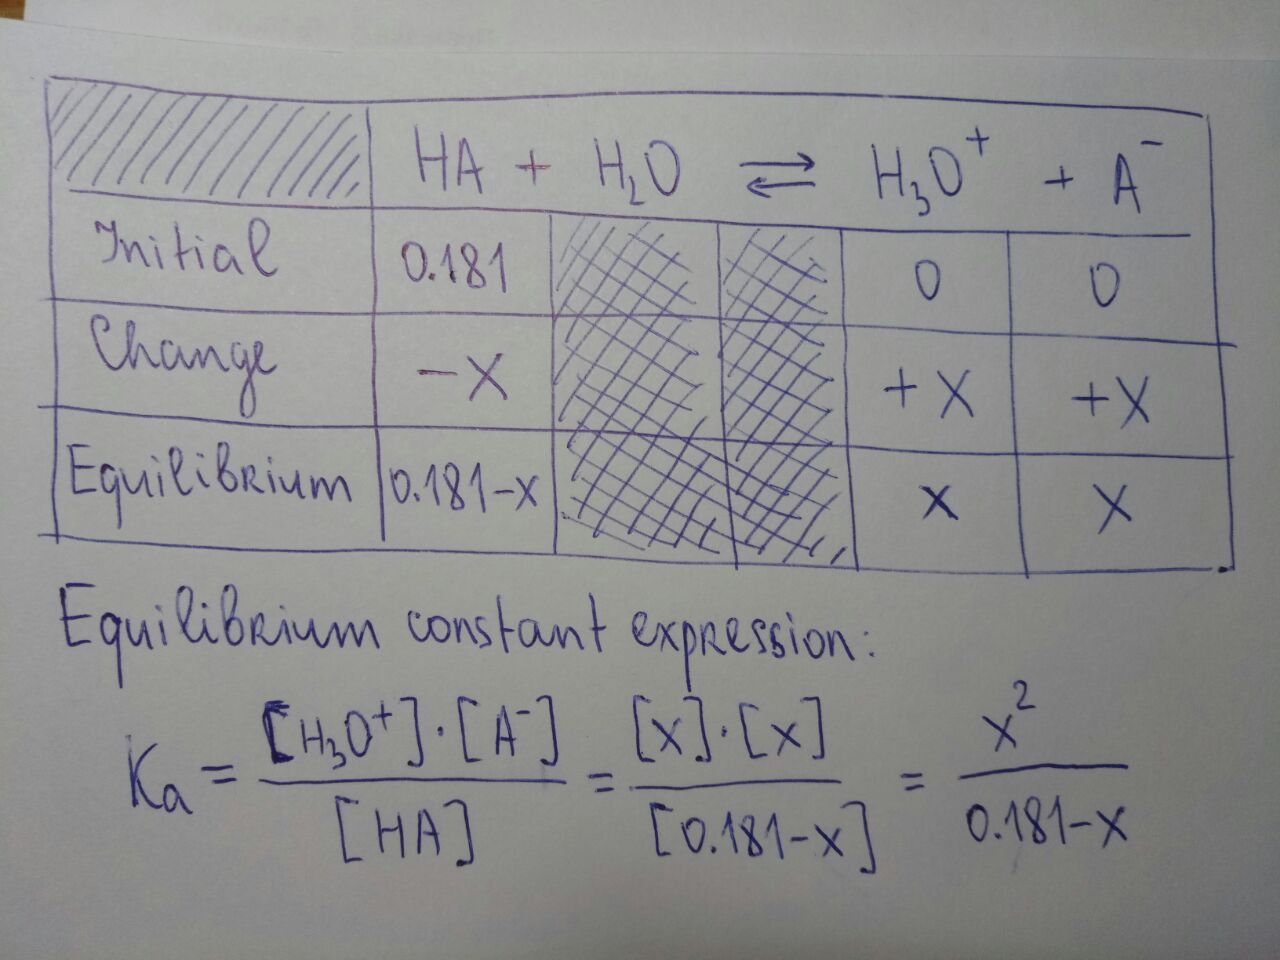 HA + H₂O ⇌ H₃O⁺ + A⁻
Initial 0.181 0 0
Change -x +x +x
Equilibrium 0.181-x x x
Equilibrium constant expression:
Ka = [H₃O⁺]·[A⁻] / [HA] = [x]·[x] / [0.181-x] = x² / 0.181-x